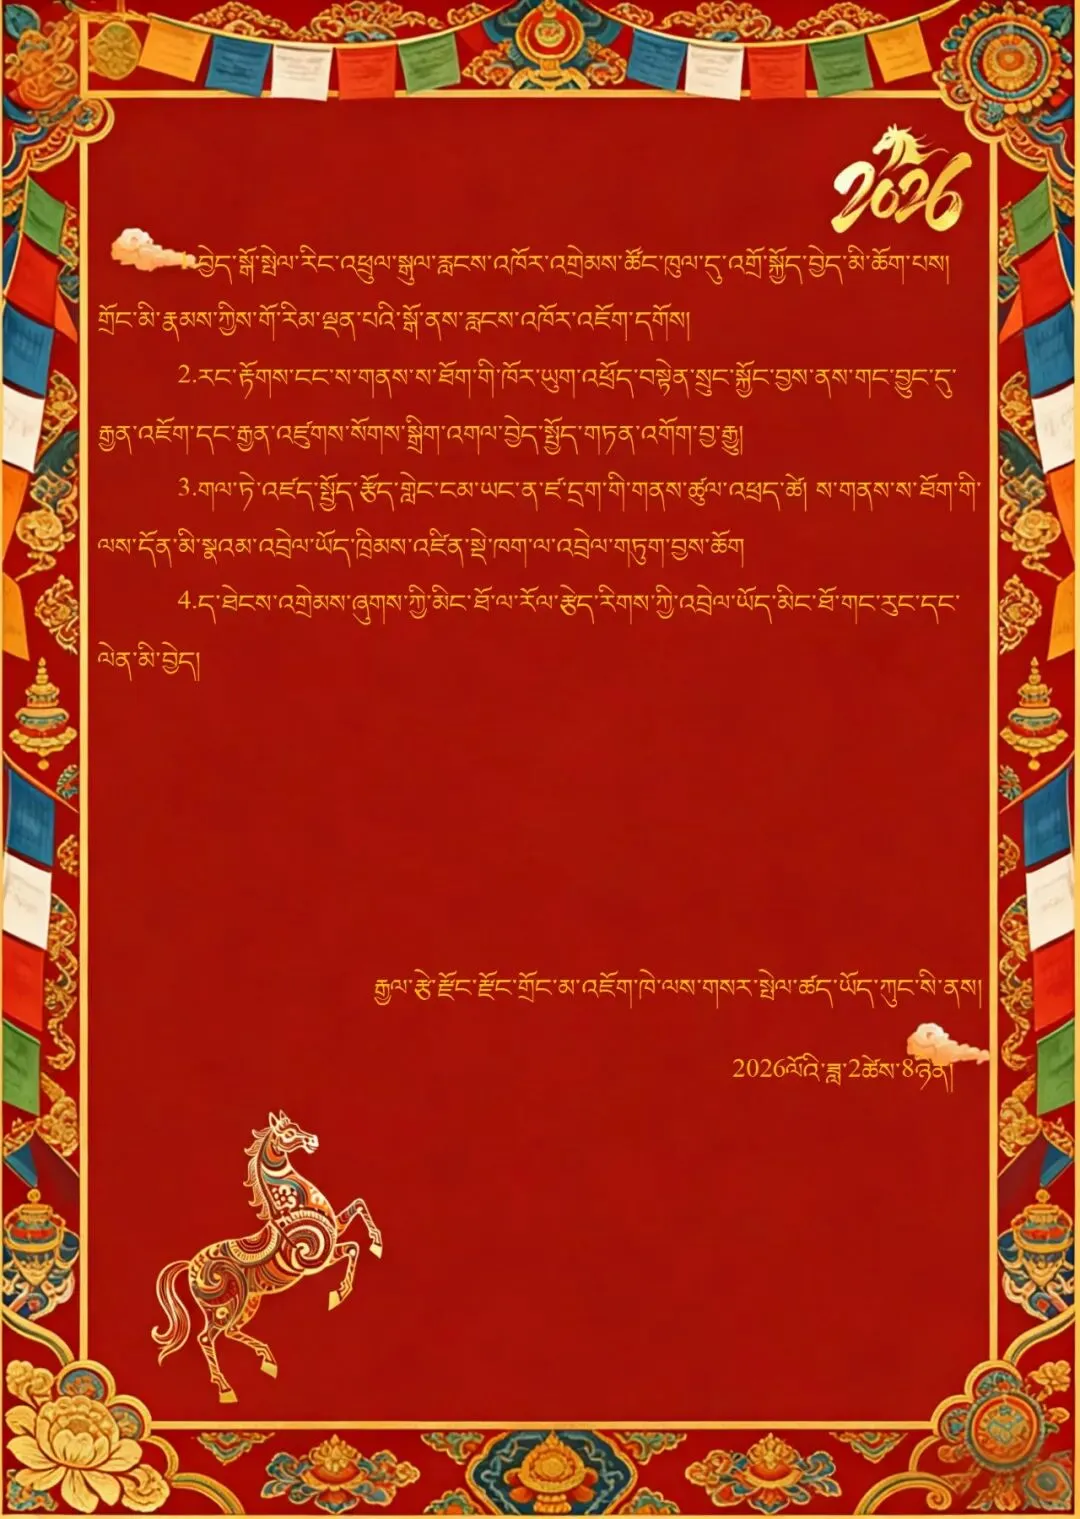 2026
བྱེད་སྒོ་སྤེལ་རིང་འཕྲུལ་སྒུལ་རླངས་འཁོར་འགྲེམས་ཚོང་ཁུལ་དུ་འགྲོ་སྐྱོད་བྱེད་མི་ཆོག་པས།
གྲོང་མི་རྣམས་ཀྱིས་གོ་རིམ་ལྡན་པའི་སྒོ་ནས་རླངས་འཁོར་འཇོག་དགོས།
2.རང་རྟོགས་ངང་ས་གནས་ས་ཐོག་གི་ཁོར་ཡུག་འཕྲོད་བསྟེན་སྲུང་སྐྱོང་བྱས་ནས་གང་བྱུང་དུ་
རྒྱན་འཇོག་དང་རྒྱན་འཛུགས་སོགས་སྒྲིག་འགལ་བྱེད་སྤྱོད་གཏན་འགོག་བྱ་རྒྱུ།
3.གལ་ཏེ་འཛད་སྤྱོད་རྩོད་གླེང་ངམ་ཡང་ན་ཛ་དྲག་གི་གནས་ཚུལ་འཕྲད་ཚེ། ས་གནས་ས་ཐོག་གི་
ལས་དོན་མི་སྣའམ་འབྲེལ་ཡོད་ཁྲིམས་འཛིན་སྡེ་ཁག་ལ་འབྲེལ་གཏུག་བྱས་ཆོག
4.ད་ཐེངས་འགྲེམས་ཞུགས་ཀྱི་མིང་ཐོ་ལ་རོལ་རྩེད་རིགས་ཀྱི་འབྲེལ་ཡོད་མིང་ཐོ་གང་རུང་དང་
ལེན་མི་བྱེད།
རྒྱལ་རྩེ་རྫོང་རྫོང་གྲོང་མ་འཇོག་ཁེ་ལས་གསར་སྤེལ་ཚད་ཡོད་ཀུང་སི་ནས།
2026ལོའི་ཟླ་2ཚེས་8ཉིན།